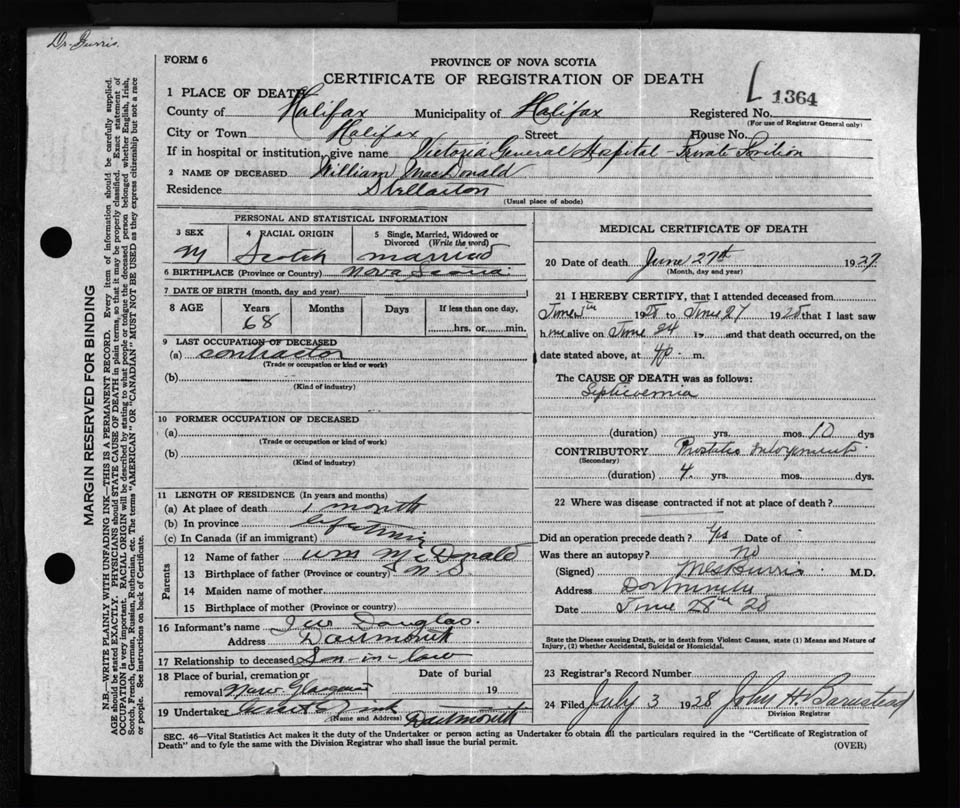 Dr. Burris.
FORM 6
PROVINCE OF NOVA SCOTIA
CERTIFICATE OF REGISTRATION OF DEATH
MARGIN RESERVED FOR BINDING
N.B.—WRITE PLAINLY WITH UNFADING INK—THIS IS A PERMANENT RECORD. Every item of information should be carefully supplied.
AGE should be stated EXACTLY. PHYSICIANS should STATE CAUSE OF DEATH in plain terms, so that it may be properly classified. Exact statement of
OCCUPATION is very important. RACIAL ORIGIN will be described by stating to what people or tongue the deceased person belonged whether English, Irish,
Scotch, French, German, Russian, Ruthenian, etc. The terms "AMERICAN" OR "CANADIAN" MUST NOT BE USED as they express citizenship but not a race
or people. See instructions on back of Certificate.
1 PLACE OF DEATH
County of Halifax Municipality of Halifax Registered No. L 1364
(For use of Registrar General only)
City or Town Halifax Street House No.
If in hospital or institution, give name Victoria General Hospital - Private Pavilion
2 NAME OF DECEASED William MacDonald
Residence Stellarton
(Usual place of abode)
PERSONAL AND STATISTICAL INFORMATION
3 SEX M
4 RACIAL ORIGIN Scotch
5 Single, Married, Widowed or Divorced (Write the word) married
6 BIRTHPLACE (Province or Country) Nova Scotia
7 DATE OF BIRTH (month, day and year)
8 AGE Years Months Days If less than one day,
68 hrs. or min.
9 LAST OCCUPATION OF DECEASED
(a) contractor
(Trade or occupation or kind or work)
(b)
(Kind of industry)
10 FORMER OCCUPATION OF DECEASED
(a)
(Trade or occupation or kind of work)
(b)
(Kind of industry)
11 LENGTH OF RESIDENCE (In years and months)
(a) At place of death 1 month
(b) In province lifetime
(c) In Canada (if an immigrant)
Parents
12 Name of father Wm McDonald
13 Birthplace of father (Province or country) N.S.
14 Maiden name of mother
15 Birthplace of mother (Province or Country)
16 Informant's name Douglas.
Address Dartmouth
17 Relationship to deceased Son-in-law
18 Place of burial, cremation or Date of burial
removal New Glasgow 19
19 Undertaker Dartmouth
(Name and Address)
MEDICAL CERTIFICATE OF DEATH
20 Date of death June 27th 1927
(Month, day and year)
21 I HEREBY CERTIFY, that I attended deceased from
June 1928 to June 27 1928 that I last saw
him alive on June 24 19 and that death occurred, on the
date stated above, at 4 p. m.
The CAUSE OF DEATH was as follows:
Septicaemia
(duration) yrs. mos. 10 dys
CONTRIBUTORY Prostatic Enlargement
(Secondary)
(duration) 4 yrs. mos. dys.
22 Where was disease contracted if not at place of death?
Did an operation precede death? Yes Date of
Was there an autopsy? No
(Signed) Burris M.D.
Address Dartmouth
Date June 28th 28
State the Disease causing Death, or in death from Violent Causes, state (1) Means and Nature of
Injury, (2) whether Accidental, Suicidal or Homicidal.
23 Registrar's Record Number
24 Filed July 3 1928 John H. Barnstead
Division Registrar
SEC. 46—Vital Statistics Act makes it the duty of the Undertaker or person acting as Undertaker to obtain all the particulars required in the "Certificate of Registration of
Death" and to fyle the same with the Division Registrar who shall issue the burial permit. (OVER)